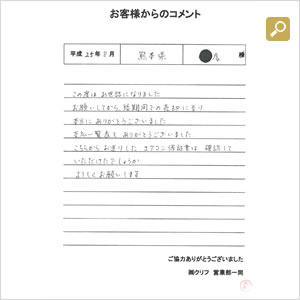 お客様からのコメント
平成25年8月 熊本県 様
この度は お世話になりました
お願いしてから、短期間での売却に至り
本当に ありがとうございました
支払一覧表も ありがとうございました
こちらから お送りした エアコン保証書は 確認して
いただけたでしょうか
よろしくお願いします
ご協力ありがとうございました
㈱クリフ 営業部一同